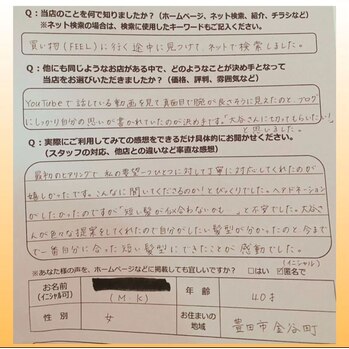 Q：当店のことを何で知りましたか？（ホームページ、ネット検索、紹介、チラシなど）
※ネット検索の場合は、検索に使用したキーワードもご記入ください。
買い物(FEEL)に行く途中に見つけて、ネットで検索しました。
Q：他にも同じようなお店がある中で、どのようなことが決め手となって
当店をお選びいただきましたか？（価格、評判、雰囲気など）
YouTubeで話している動画を見て真面目で腕が良さそうに見えたのと、ブログ
にしっかり自分の思いが書かれていたのが決め手です。"大谷さんに切ってもらいたい！"
と思いました。
Q：実際にご利用してみての感想をできるだけ具体的にお聞かせください。
（スタッフの対応、他店との違いなど率直な感想）
最初のヒアリングで私の要望一つひとつに対して丁寧に対応してくれたのが
嬉しかったです。こんなに聞いてくださるのか！とびっくりでした。ヘアドネーション
がしたかったのですが"短い髪が似合わないかも…"と不安でした。大谷さ
んが色々な提案をしてくれたので自分がしたい髪型が分かったのと今まで
で一番自分に合った短い髪型にできたことが感動でした。
(イニシャル)
※あなた様の声を、ホームページなどに掲載しても宜しいですか？ □はい ☑匿名で
お名前
(イニシャル可)
(M・K)
年 齢
40才
性 別
女
お住まいの
地域
豊田市金谷町